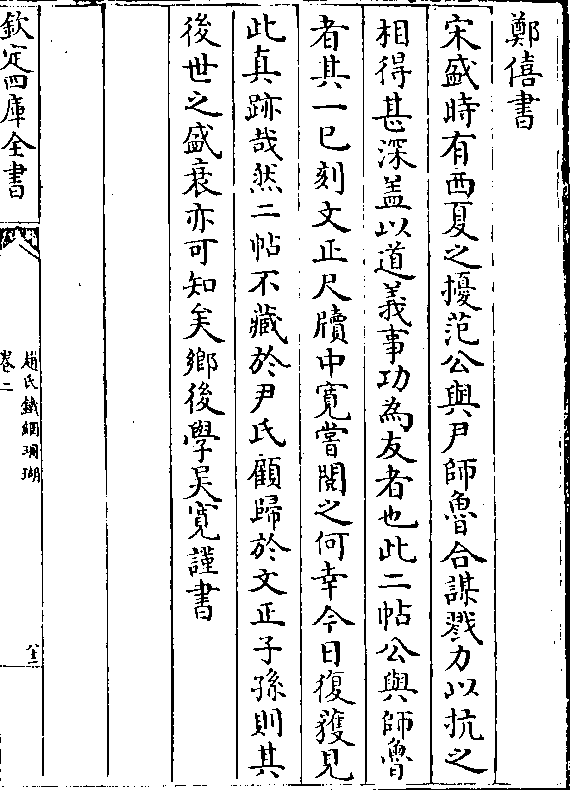 鄭僖書
宋盛時有西夏之擾范公與尹師魯合謀戮力以抗之
相得甚深盖以道義事功為友者也此二帖公與師魯
者其一已刻文正尺牘中寛嘗閱之何幸今日復獲見
此真跡哉然二帖不藏於尹氏顧歸於文正子孫則其
後世之盛衰亦可知矣鄉後學吳寛謹書
欽定四庫全書
趙氏鐵網珊瑚
卷二